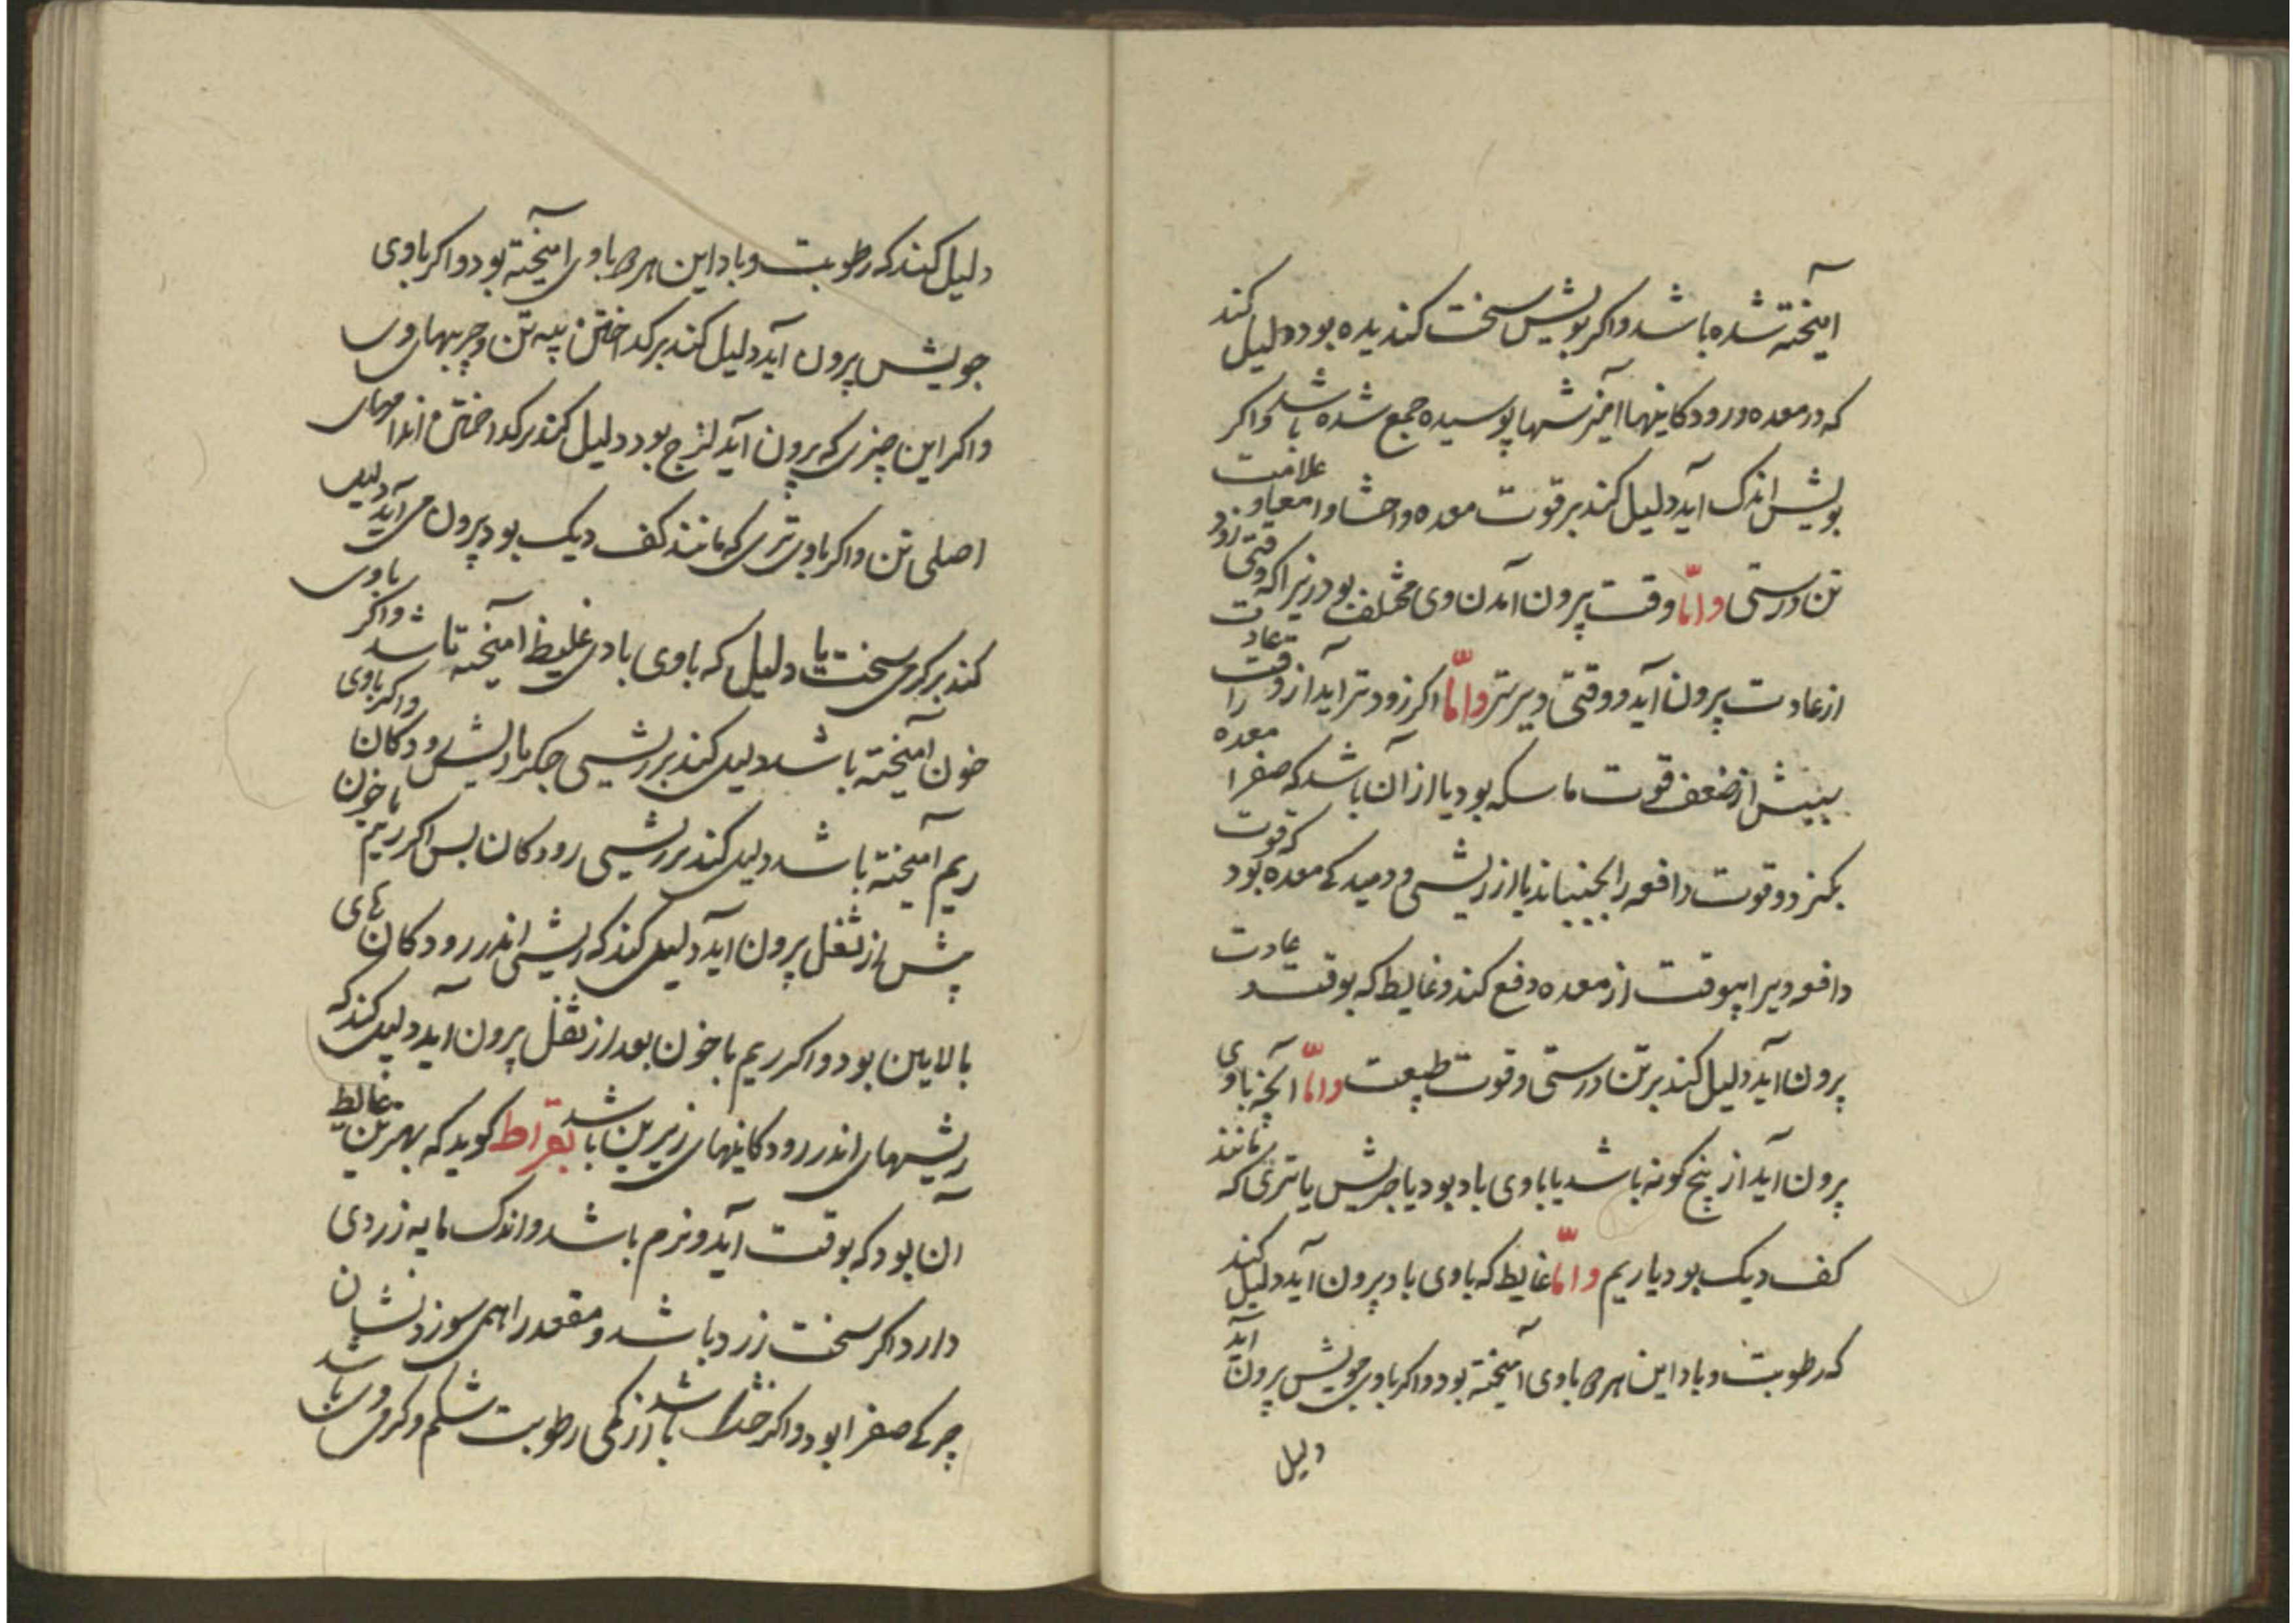 آمیخته شده باشد واکر بویش سخت کندیده بود دلیل کند
که در معده و رودکاینها امیزشها پوسیده جمع شده باشد واکر
بویش اندک آید دلیل کند بر قوت معده واحشا وامعا و علامت
تن درستی وامّا وقت پرون آمدن وی مختلف بود زیرا که وقتی زود
از عادت پرون آید ووقتی دیرتر وامّا اکر زودتر آید از وقت عادت را
سببش از ضعف قوت ماسکه بود یا از آن باشد که صفرا معده
بکزد وقوت دافعه را بجنباند یا از ریشی و دمیدکی معده بود که قوت
دافعه ویرا بیوقت از معده دفع کند وغایط که بوقت عادت
پرون آید دلیل کند بر تن درستی وقوت طبیعت وامّا آنچه باوی
پرون آید از پنج کونه باشد یا باوی باد بود یا چربش یا تری که مانند
کف دیک بود یا ریم وامّا غایط که باوی باد پرون آید دلیل کند
که رطوبت وباد این هر دو باوی آمیخته بود واکر باوی چربش پرون آید
دلیل
دلیل کند که رطوبت وباد این هر دو باوی آمیخته بود واکر باوی
چربش پرون آید دلیل کند بر کداختن پیه تن وچربیهای وی
واکر این چیزی که پرون آید لزج بود دلیل کند بر کداختن اندامهای
اصلی تن واکر باوی تری که مانند کف دیک بود پرون می آید دلیل
کند بر کرمی سخت یا دلیل که باوی بادی غلیظ آمیخته باشد واکر باوی
خون آمیخته باشد دلیل کند بر ریشی جکر یا ریش رودکان واکر باوی
ریم آمیخته باشد دلیل کند بر ریشی رودکان بس اکر ریم یا خون
پیش از ثفل پرون آید دلیل کند که ریشی اندر رودکان های
بالایین بود واکر ریم یا خون بعد از ثفل پرون آید دلیل کند که
ریشهای اندر رودکاینهای زیرین باشد بقراط کوید که بهترین غایط
آن بود که بوقت آید ونرم باشد واندک مایه زردی
دارد اکر سخت زرد باشد ومقعد را همی سوزد نشان
چرکی صفرا بود واکر خشک باشد از کمی رطوبت شکم وکرمی وی باشد